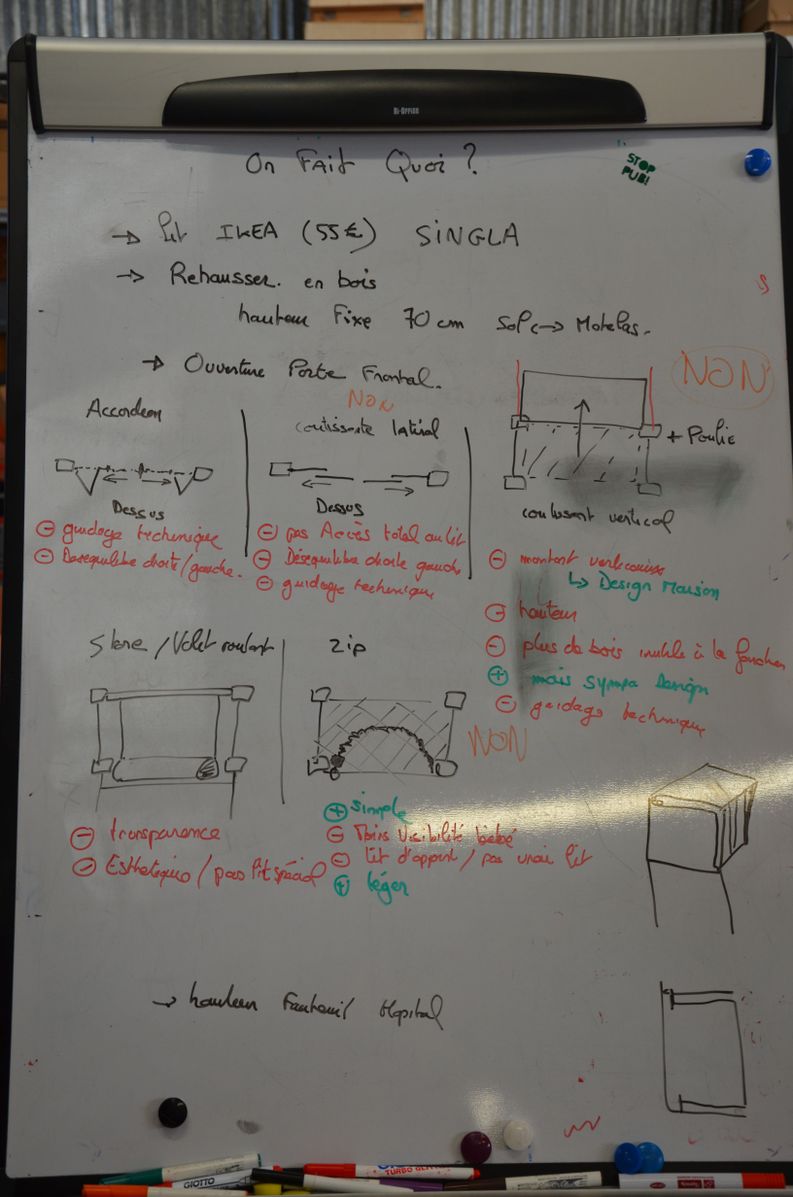 BI-OFFICE
On Fait Quoi ?
STOP
PUB!
→ Lit IKEA (55€) SINGLA
→ Rehausser. en bois
hauteur Fixe 70 cm Sol ↔ Matelas.
→ Ouverture Porte Frontal.
NON
Accordeon
NON
coulissante latéral
+ Poulie
Dessus
Dessus
coulissant vertical
⊖ guidage technique
⊖ Desequilibre droite/gauche.
⊖ pas Accès total au lit
⊖ Désequilibre droite gauche
⊖ guidage technique
⊖ montant
↳ Design Maison
⊖ hauteur
⊖ plus de bois inutile à la fonction
⊕ mais sympa Design
⊖ guidage technique
Store /Volet roulant
Zip
NON
⊖ transparence
⊖ Esthetique / pas lit spécial
⊕ simple
⊖ Moins visibilité bébé
⊖ lit d'appoint / pas vrai lit
⊕ léger
→ hauteur Fauteuil Hopital
GIOTTO
TURBO